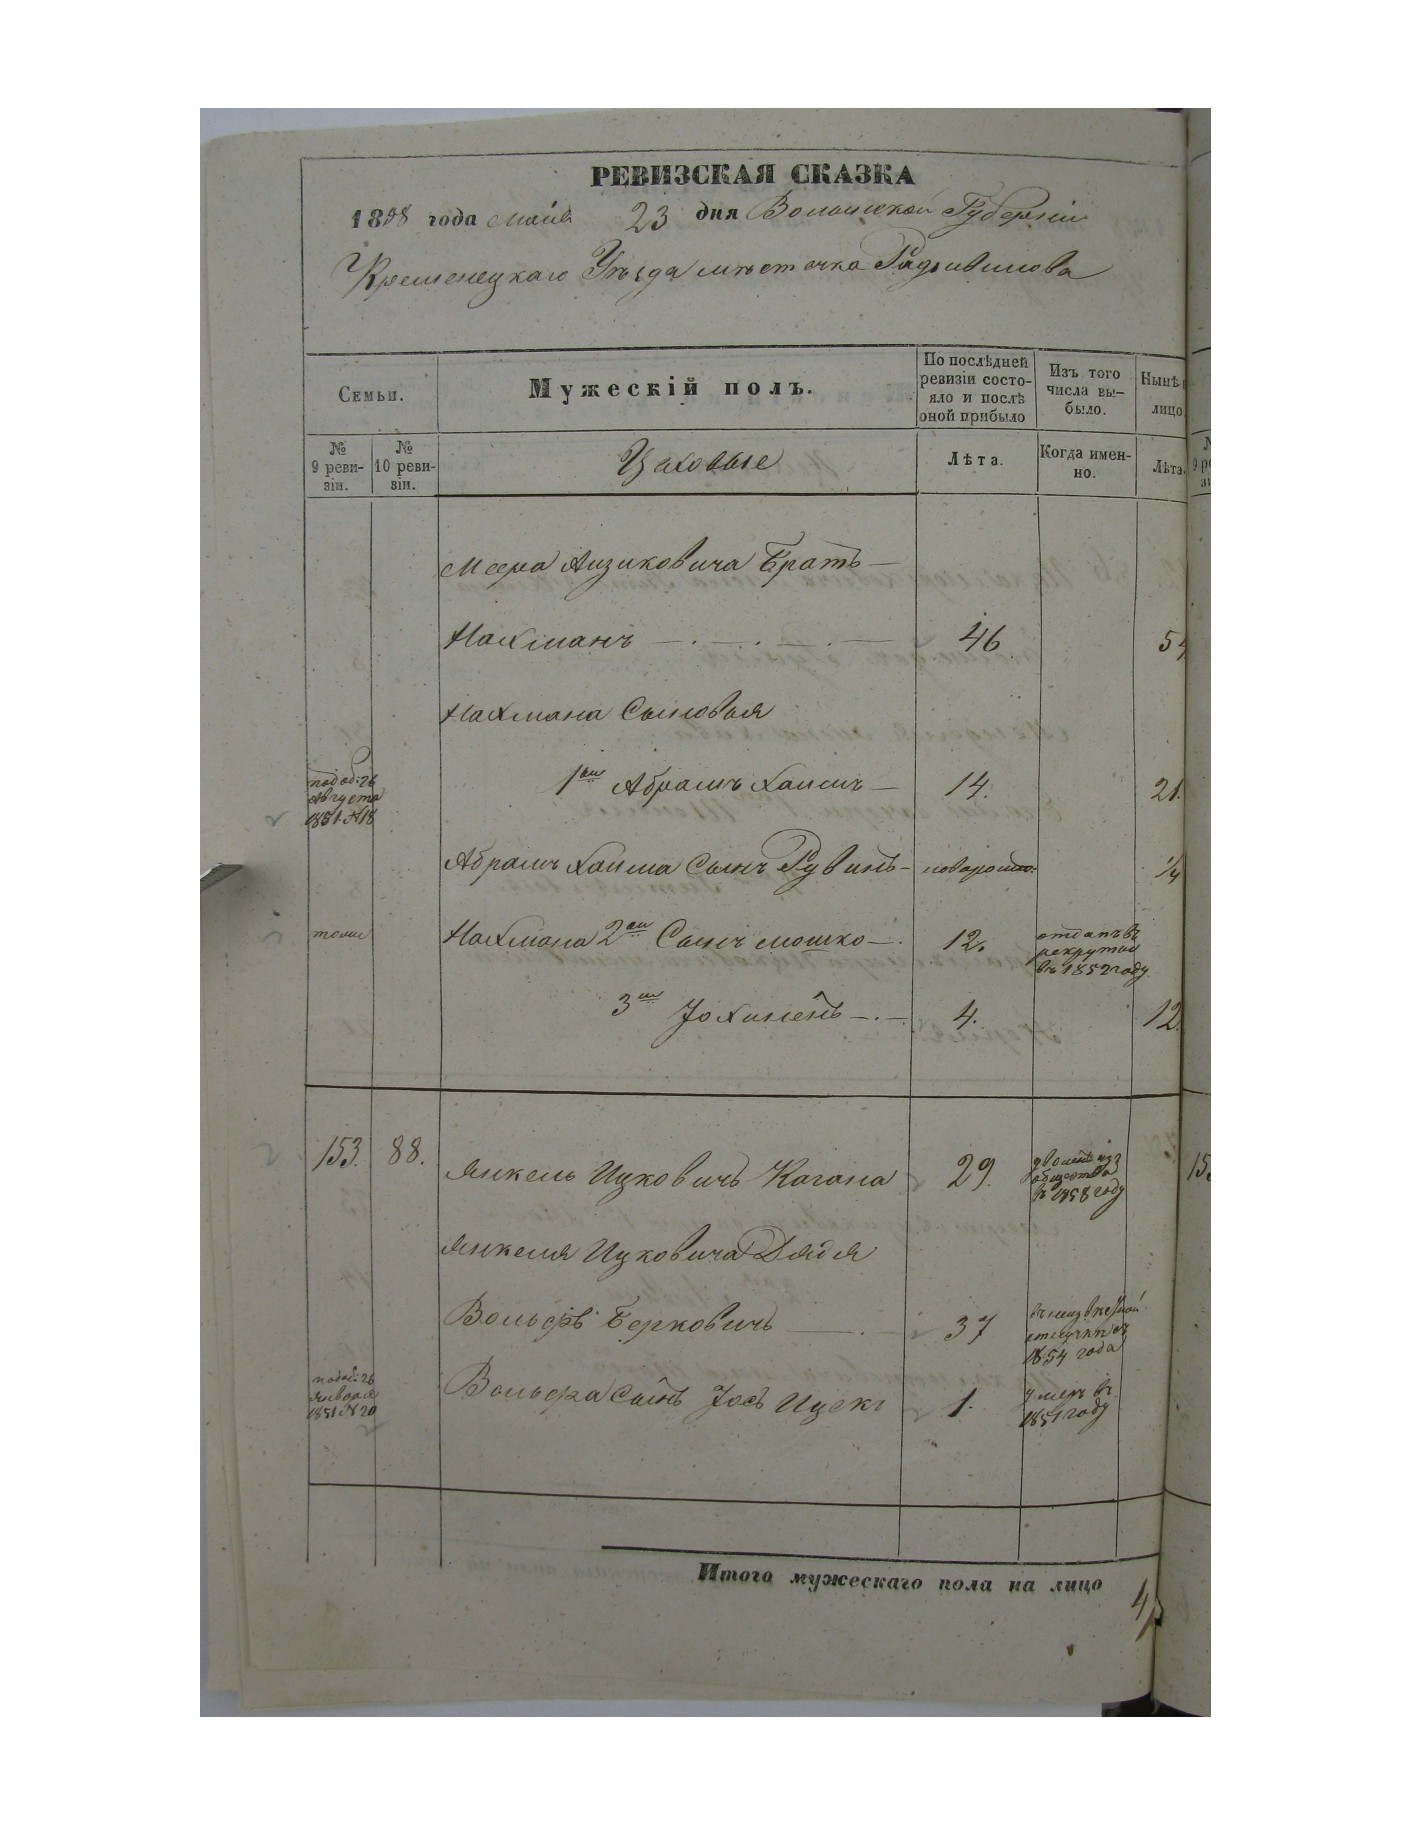 РЕВИЗСКАЯ СКАЗКА
1858 года мая 23 дня Волынской Губернии
Кременецкаго Уѣзда мѣстечка Радзивилова
Семьи.
Мужескій полъ.
По послѣдней ревизіи состояло и послѣ оной прибыло
Изъ того числа выбыло.
Нынѣ
лицо
№ 9 ревизіи.
№ 10 ревизіи.
Цеховые
Лѣта.
Когда именно.
Лѣта.
Меера Аизиковича Братъ —
Нахманъ 46 54
Нахмана Сыновья
по доб: 26 Августа 1851 № 18
1ый Абрамъ Хаимъ — 14. 21.
Абрамъ Хаима Сынъ Рувинъ — новорожд: 1/4
тоже
Нахмана 2ой Сынъ Мошко — 12. отданъ въ рекруты въ 1852 году
3ий Іохиненъ — 4. 12.
153. 88. Янкель Ицковичъ Кагана 29. изъ общества въ 1858 году
Янкеля Ицковича Дядя
Вольфъ Берковичъ 37 въ неизвѣстной отлучкѣ съ 1854 года
по доб: 26 Января 1851 № 20
Вольфа Сынъ Іосъ Ицекъ 1. умеръ въ 1851 году
Итого мужескаго пола на лицо 4